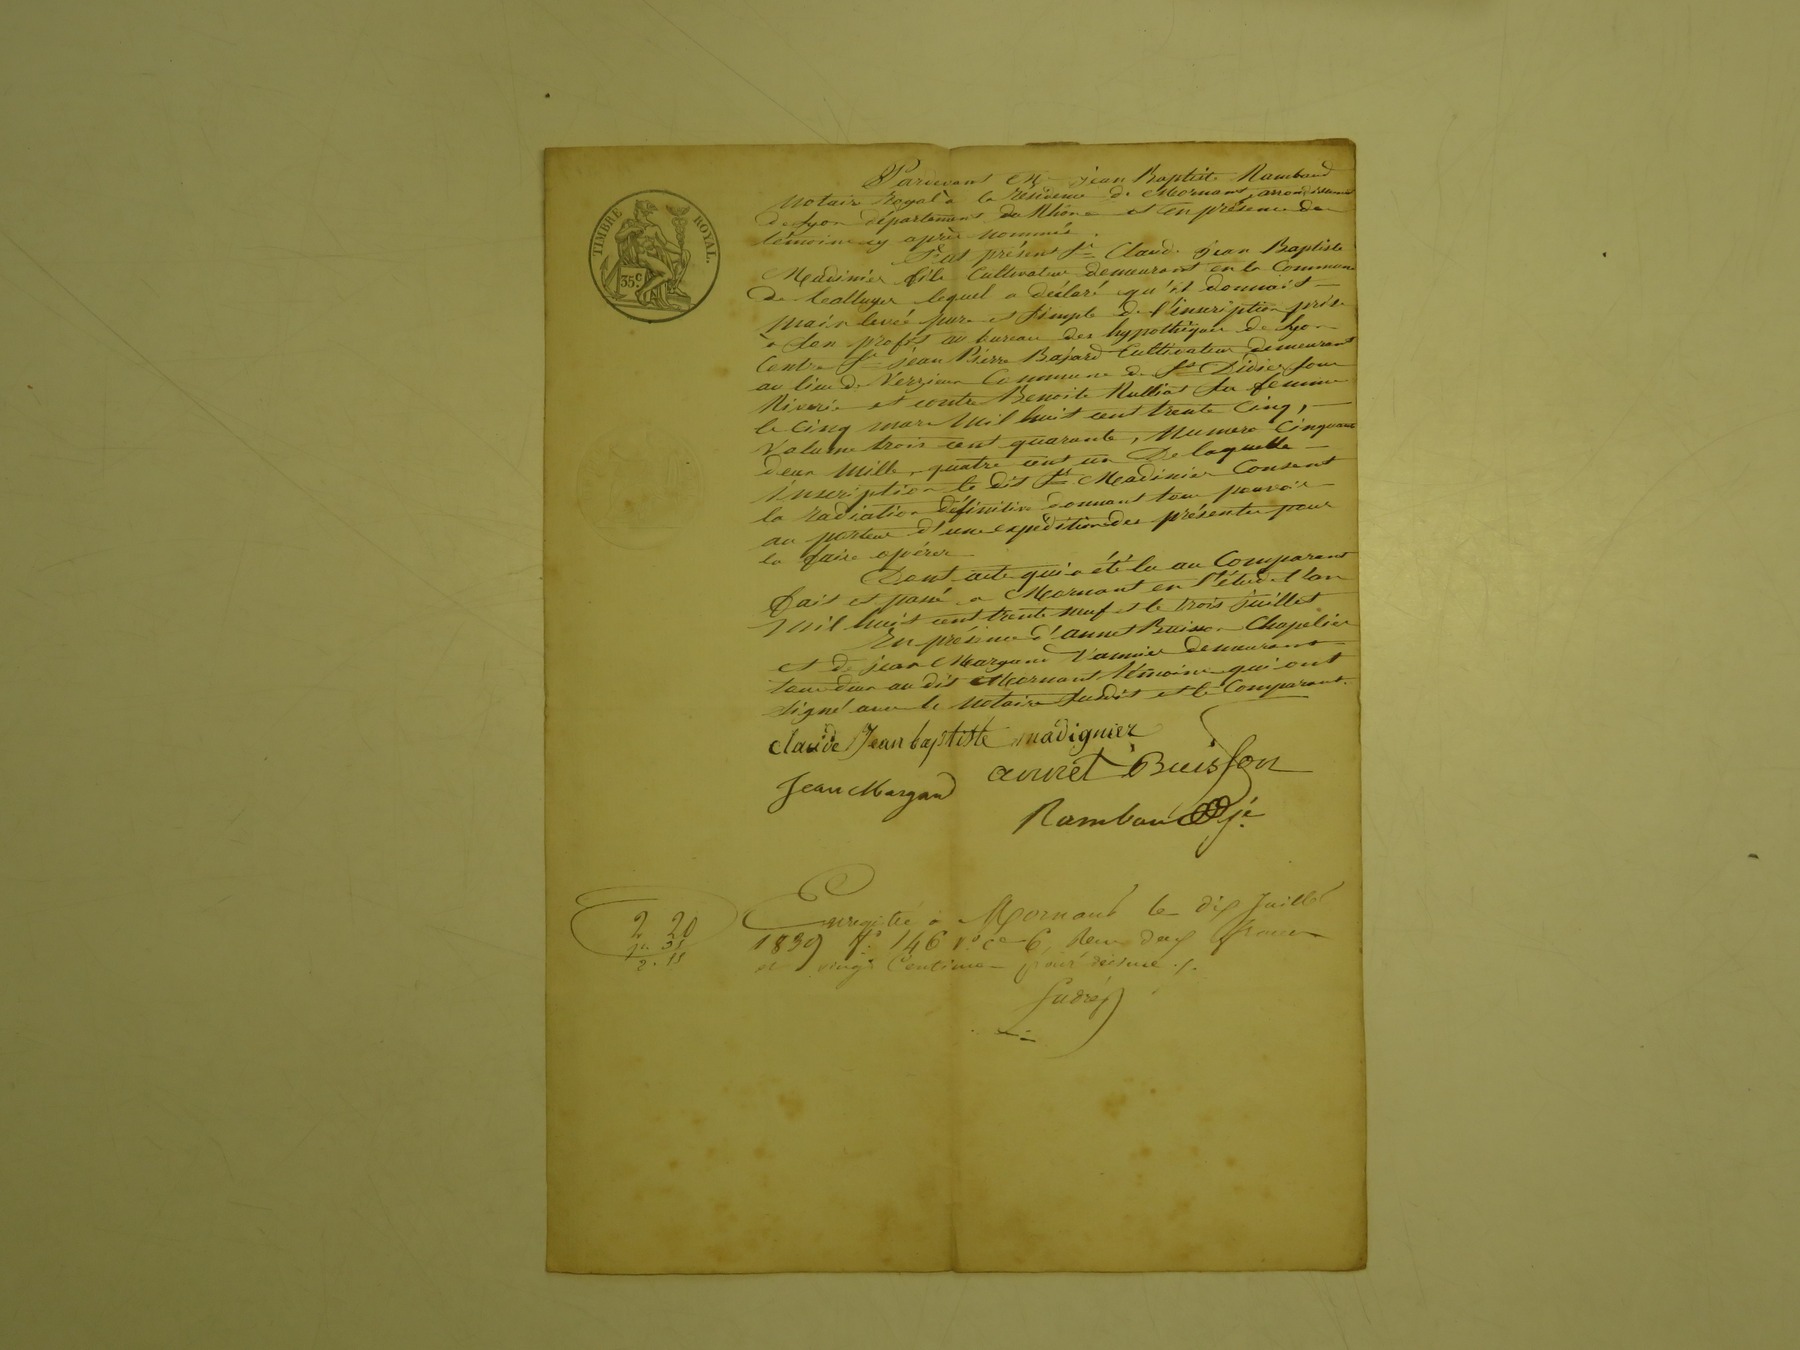 TIMBRE ROYAL.
35c.
Pardevant Me jean Baptiste Rambaud
Notaire Royal à la Résidence de Mornant, arrondissement
de Lyon département du Rhône et en présence des
témoins cy après nommés.
Est présent Sr Claude jean Baptiste
Madinier fils Cultivateur demeurant en la Commune
de lequel a déclaré qu'il donnait
main levée pure et simple de l'inscription prise
à son profit au bureau des hypothèques de Lyon
Contre Sr jean Pierre Bajard Cultivateur demeurant
au lieu de Commune de St Didier sous
Riverie et contre Benoite sa femme
le cinq mars Mil huit cent trente cinq,
Volume trois cent quarante, Numero Cinquante
deux Mille quatre cent un De laquelle
inscription le dit Sr Madinier Consent
la radiation définitive donnant tous pouvoirs
au porteur d'une expédition des présentes pour
la faire opérer
Dont acte qui a été lu au Comparant
fait et passé a Mornant en l'étude l'an
Mil huit cent trente neuf et le trois juillet
En présence d'annet Buisson Chapelier
et de jean Margand Vannier demeurant
tous deux au dit Mornant témoins qui ont
signé avec le Notaire susdit et le Comparant.
claude Jean baptiste madignier
annet Buisson
Jean Margand
Rambaud
Enregistré à Mornant le dix Juillet
1839 fo 146 vo ce 6, Reçu deux francs
et vingt Centimes pour décime
2 20